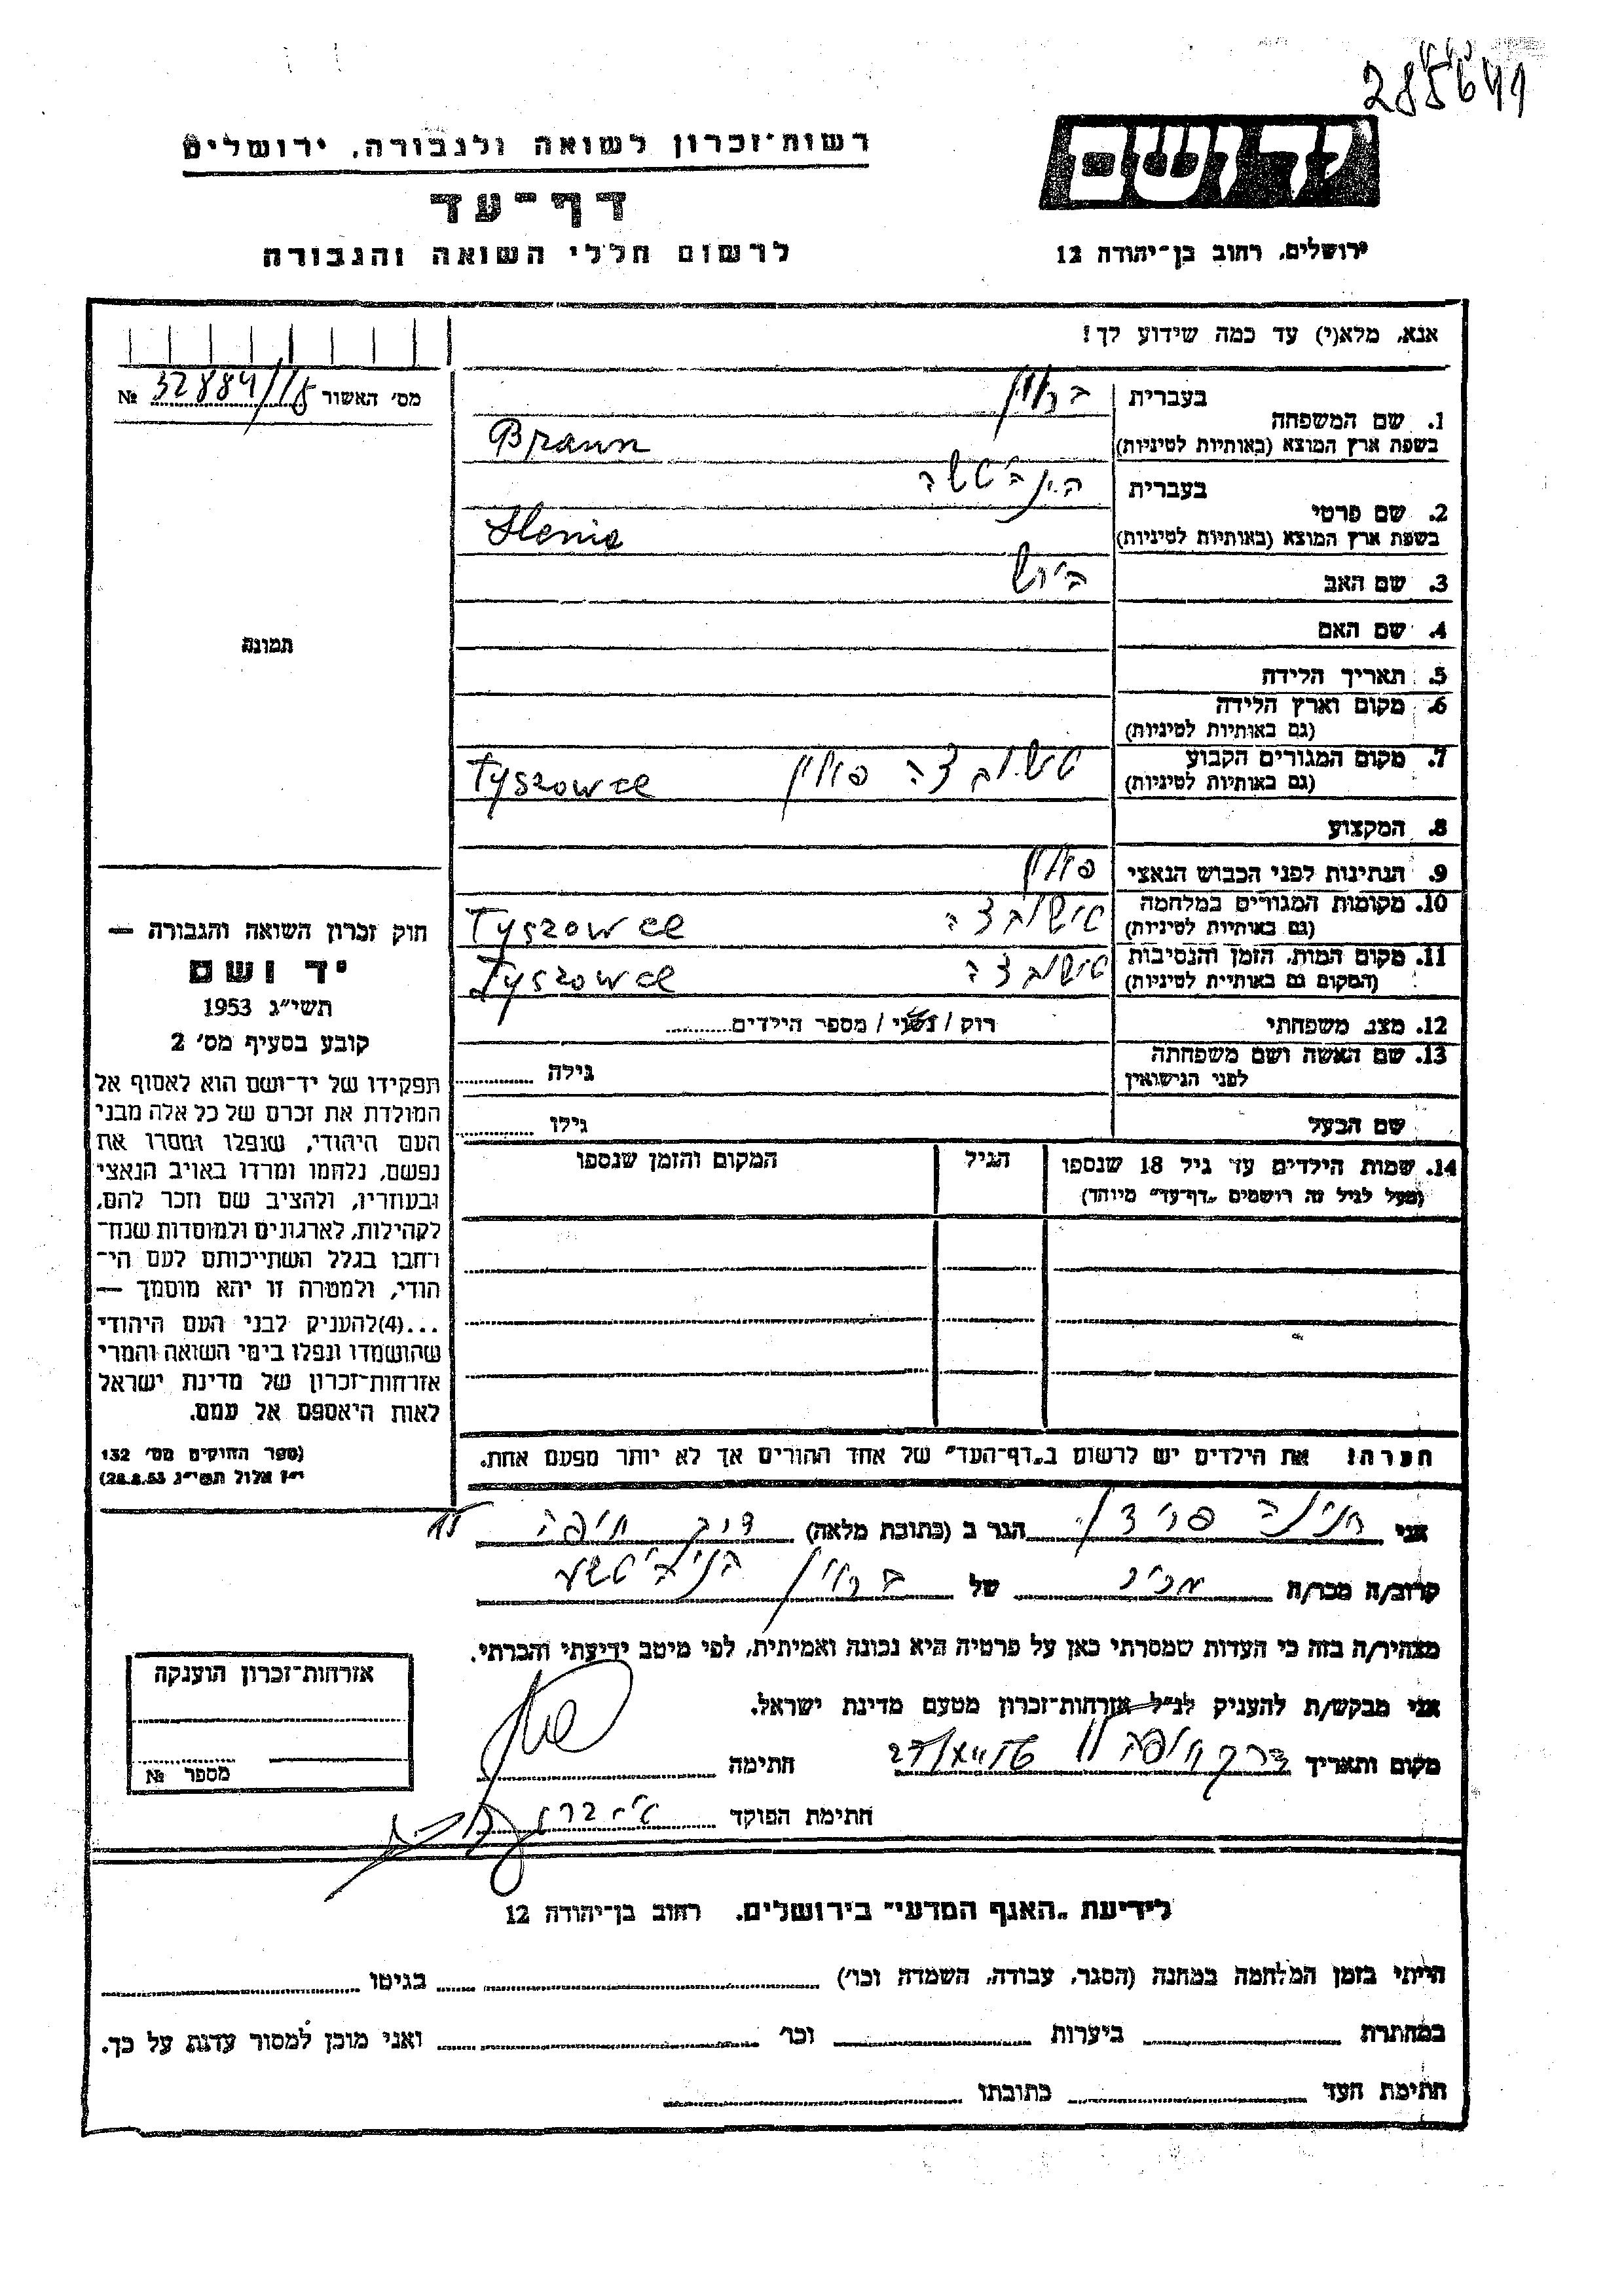 285641
רשות־זכרון לשואה ולגבורה, ירושלים
דף־עד
לרשום חללי השואה והגבורה
יד ושם
ירושלים, רחוב בן־יהודה 12
אנא, מלא(י) עד כמה שידוע לך!
מס׳ האשור 32884/15 №
1. שם המשפחה
בעברית בראון
בשפת ארץ המוצא (באותיות לטיניות) Braun
2. שם פרטי
בעברית
בשפת ארץ המוצא (באותיות לטיניות) Henie
3. שם האב
4. שם האם
5. תאריך הלידה
6. מקום וארץ הלידה
(גם באותיות לטיניות)
7. מקום המגורים הקבוע
(גם באותיות לטיניות) טישובצה פולין Tyszowce
8. המקצוע
9. הנתינות לפני הכבוש הנאצי פולין
10. מקומות המגורים במלחמה
(גם באותיות לטיניות) טישובצה Tyszowce
11. מקום המות, הזמן והנסיבות
(המקום גם באותיית לטיניות) טישובצה Tyszowce
12. מצב משפחתי רוק / נשוי / מספר הילדים
13. שם האשה ושם משפחתה
לפני הנישואין
גילה
שם הבעל גילו
14. שמות הילדים עד גיל 18 שנספו
(מעל לגיל זה רושמים „דף־עד" מיוחד)
הגיל
המקום והזמן שנספו
תמונה
חוק זכרון השואה והגבורה —
יד ושם
תשי״ג 1953
קובע בסעיף מס׳ 2
תפקידו של יד־ושם הוא לאסוף אל
המולדת את זכרם של כל אלה מבני
העם היהודי, שנפלו ומסרו את
נפשם, נלחמו ומרדו באויב הנאצי
ובעוזריו, ולהציב שם וזכר להם,
לקהילות, לארגונים ולמוסדות שנח־
רחבו בגלל השתייכותם לעם הי־
הודי, ולמטרה זו יהא מוסמך —
...(4)להעניק לבני העם היהודי
שהושמדו ונפלו בימי השואה והמרי
אזרחות־זכרון של מדינת ישראל
לאות היאספם אל עמם.
(ספר החוקים מס׳ 132
י״ז אלול תשי״ג 28.8.53)
הערה! את הילדים יש לרשום ב„דף־העד" של אחד ההורים אך לא יותר מפעם אחת.
אני הגר ב (כתובת מלאה)
קרוב/ה מכר/ה מכיר של בראון
מצהיר/ה בזה כי העדות שמסרתי כאן על פרטיה היא נכונה ואמיתית, לפי מיטב ידיעתי והכרתי.
אני מבקש/ת להעניק לנ״ל אזרחות־זכרון מטעם מדינת ישראל.
מקום ותאריך חתימה
חתימת הפוקד
אזרחות־זכרון הוענקה
מספר №
לידיעת „האגף המדעי" בירושלים, רחוב בן־יהודה 12
הייתי בזמן המלחמה במחנה (הסגר, עבודה, השמדה וכו׳) בגיטו
במחתרת ביערות וכו׳ ואני מוכן למסור עדות על כך.
חתימת העד כתובתו